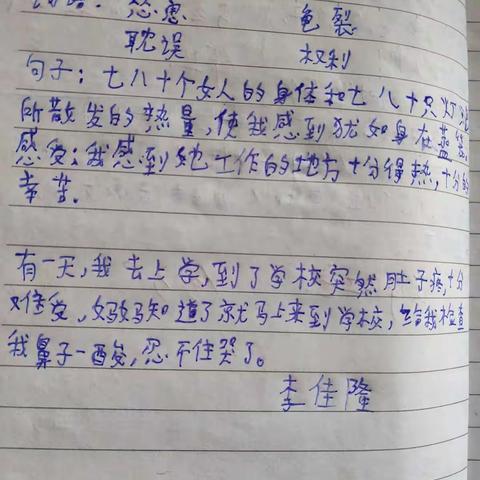 怂恿 龟裂
耽误 权利
句子：七八十个女人的身体和七八十只灯
所散发的热量，使我感到犹如身在蒸笼
感受：我感到她工作的地方十分得热，十分的
幸苦。
有一天，我去上学，到了学校突然肚子疼，十分
难受，妈妈知道了就马上来到学校，给我检查
我鼻子一酸，忍不住哭了。
李佳隆